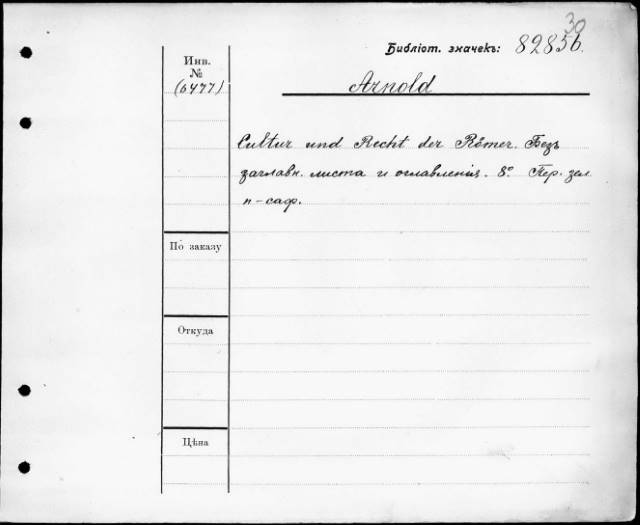 30
Библіот. значекъ: 82856.
Инв.
№
(6477)
Arnold
Cultur und Recht der Römer. Безъ
заглавн. листа и оглавленія. 8º. Пер. зел.
п-саф.
По заказу
Откуда
Цѣна